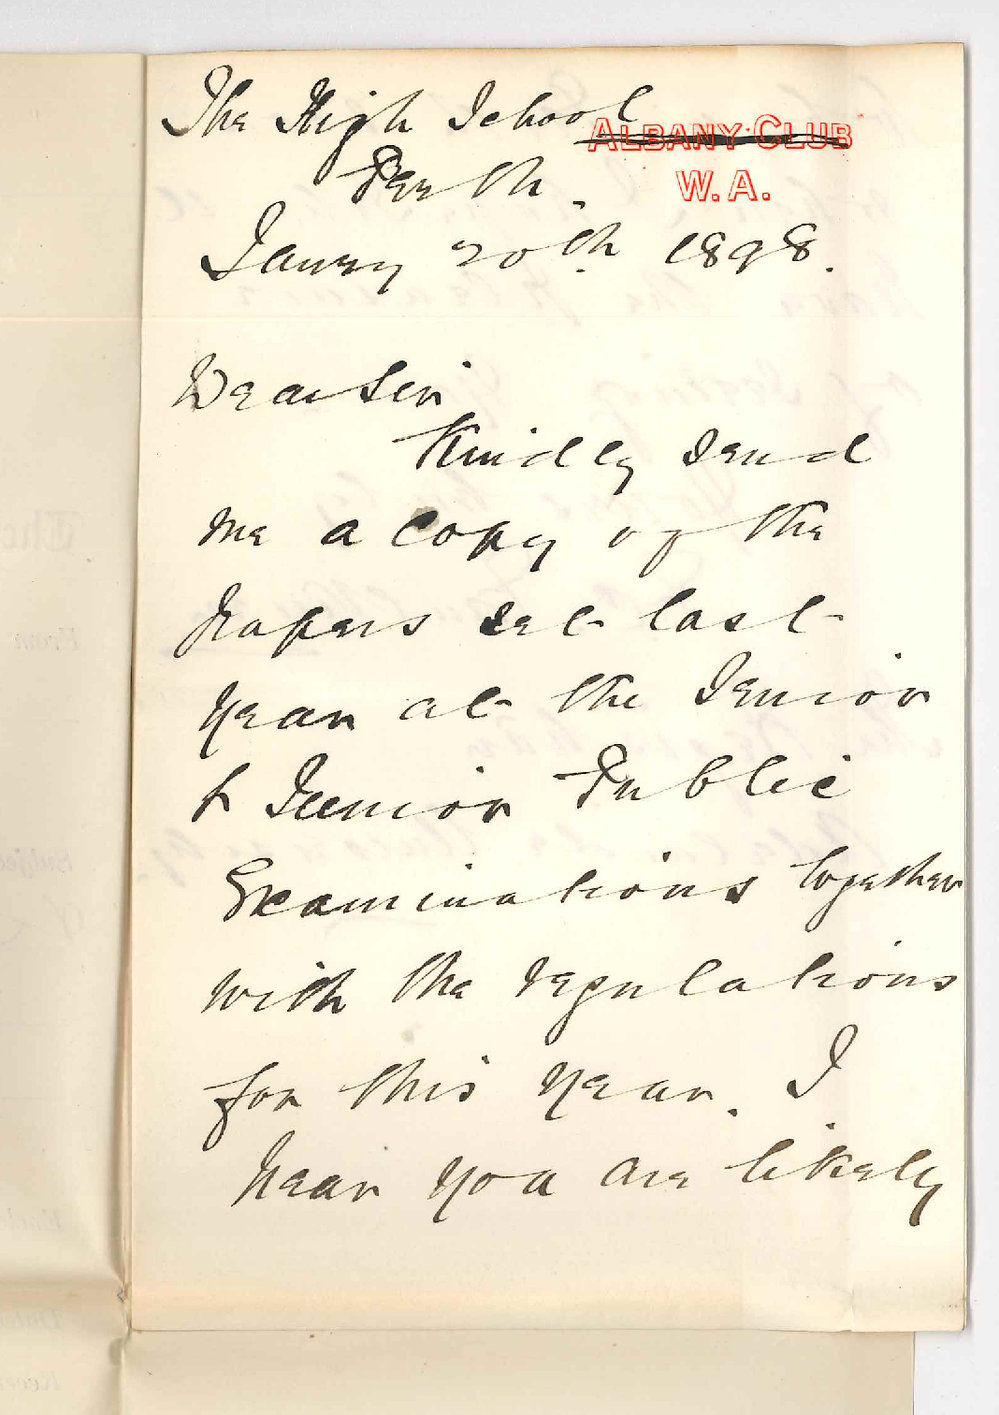 The High School
ALBANY CLUB
Perth.
W.A.
Janry 20th 1898.
Dear Sir
Kindly send
me a copy of the
papers set last
year at the Senior
& Junior Public
Examinations together
with the regulations
for this year. I
hear you are likely